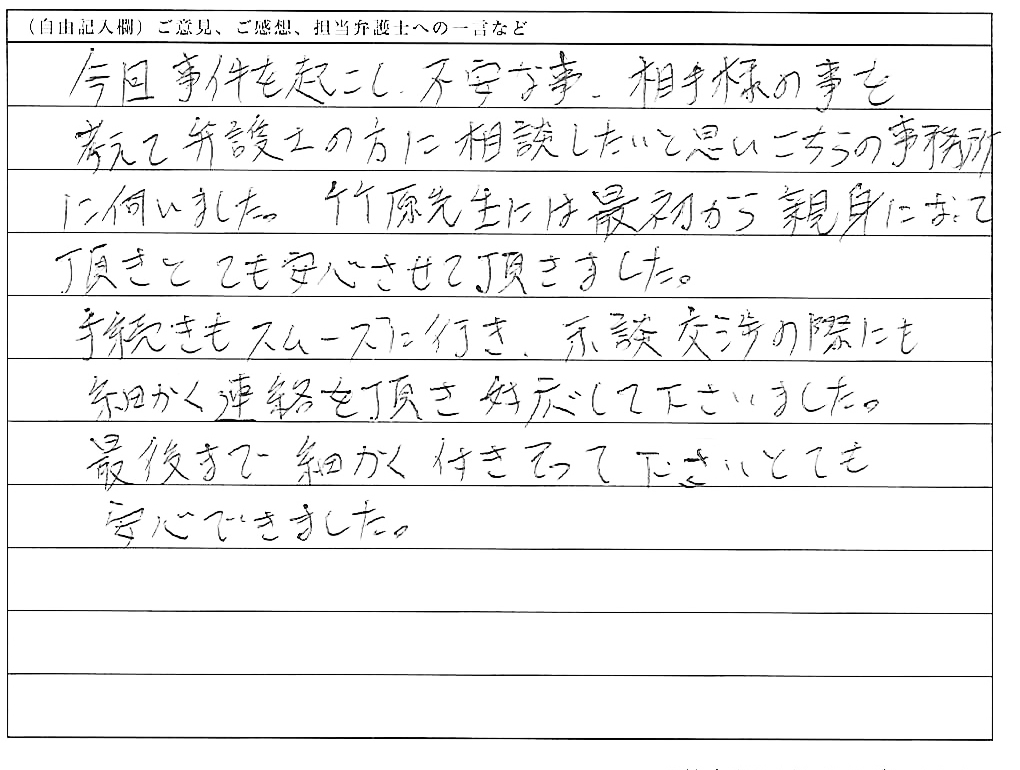 （自由記入欄）ご意見、ご感想、担当弁護士への一言など
今回事件を起こし、不安な事、相手様の事を
考えて弁護士の方に相談したいと思いこちらの事務所
に伺いました。竹原先生には最初から親身になって
頂きとても安心させて頂きました。
手続きもスムーズに行き、示談交渉の際にも
細かく連絡を頂き対応して下さいました。
最後まで細かく付きそって下さいとても
安心できました。